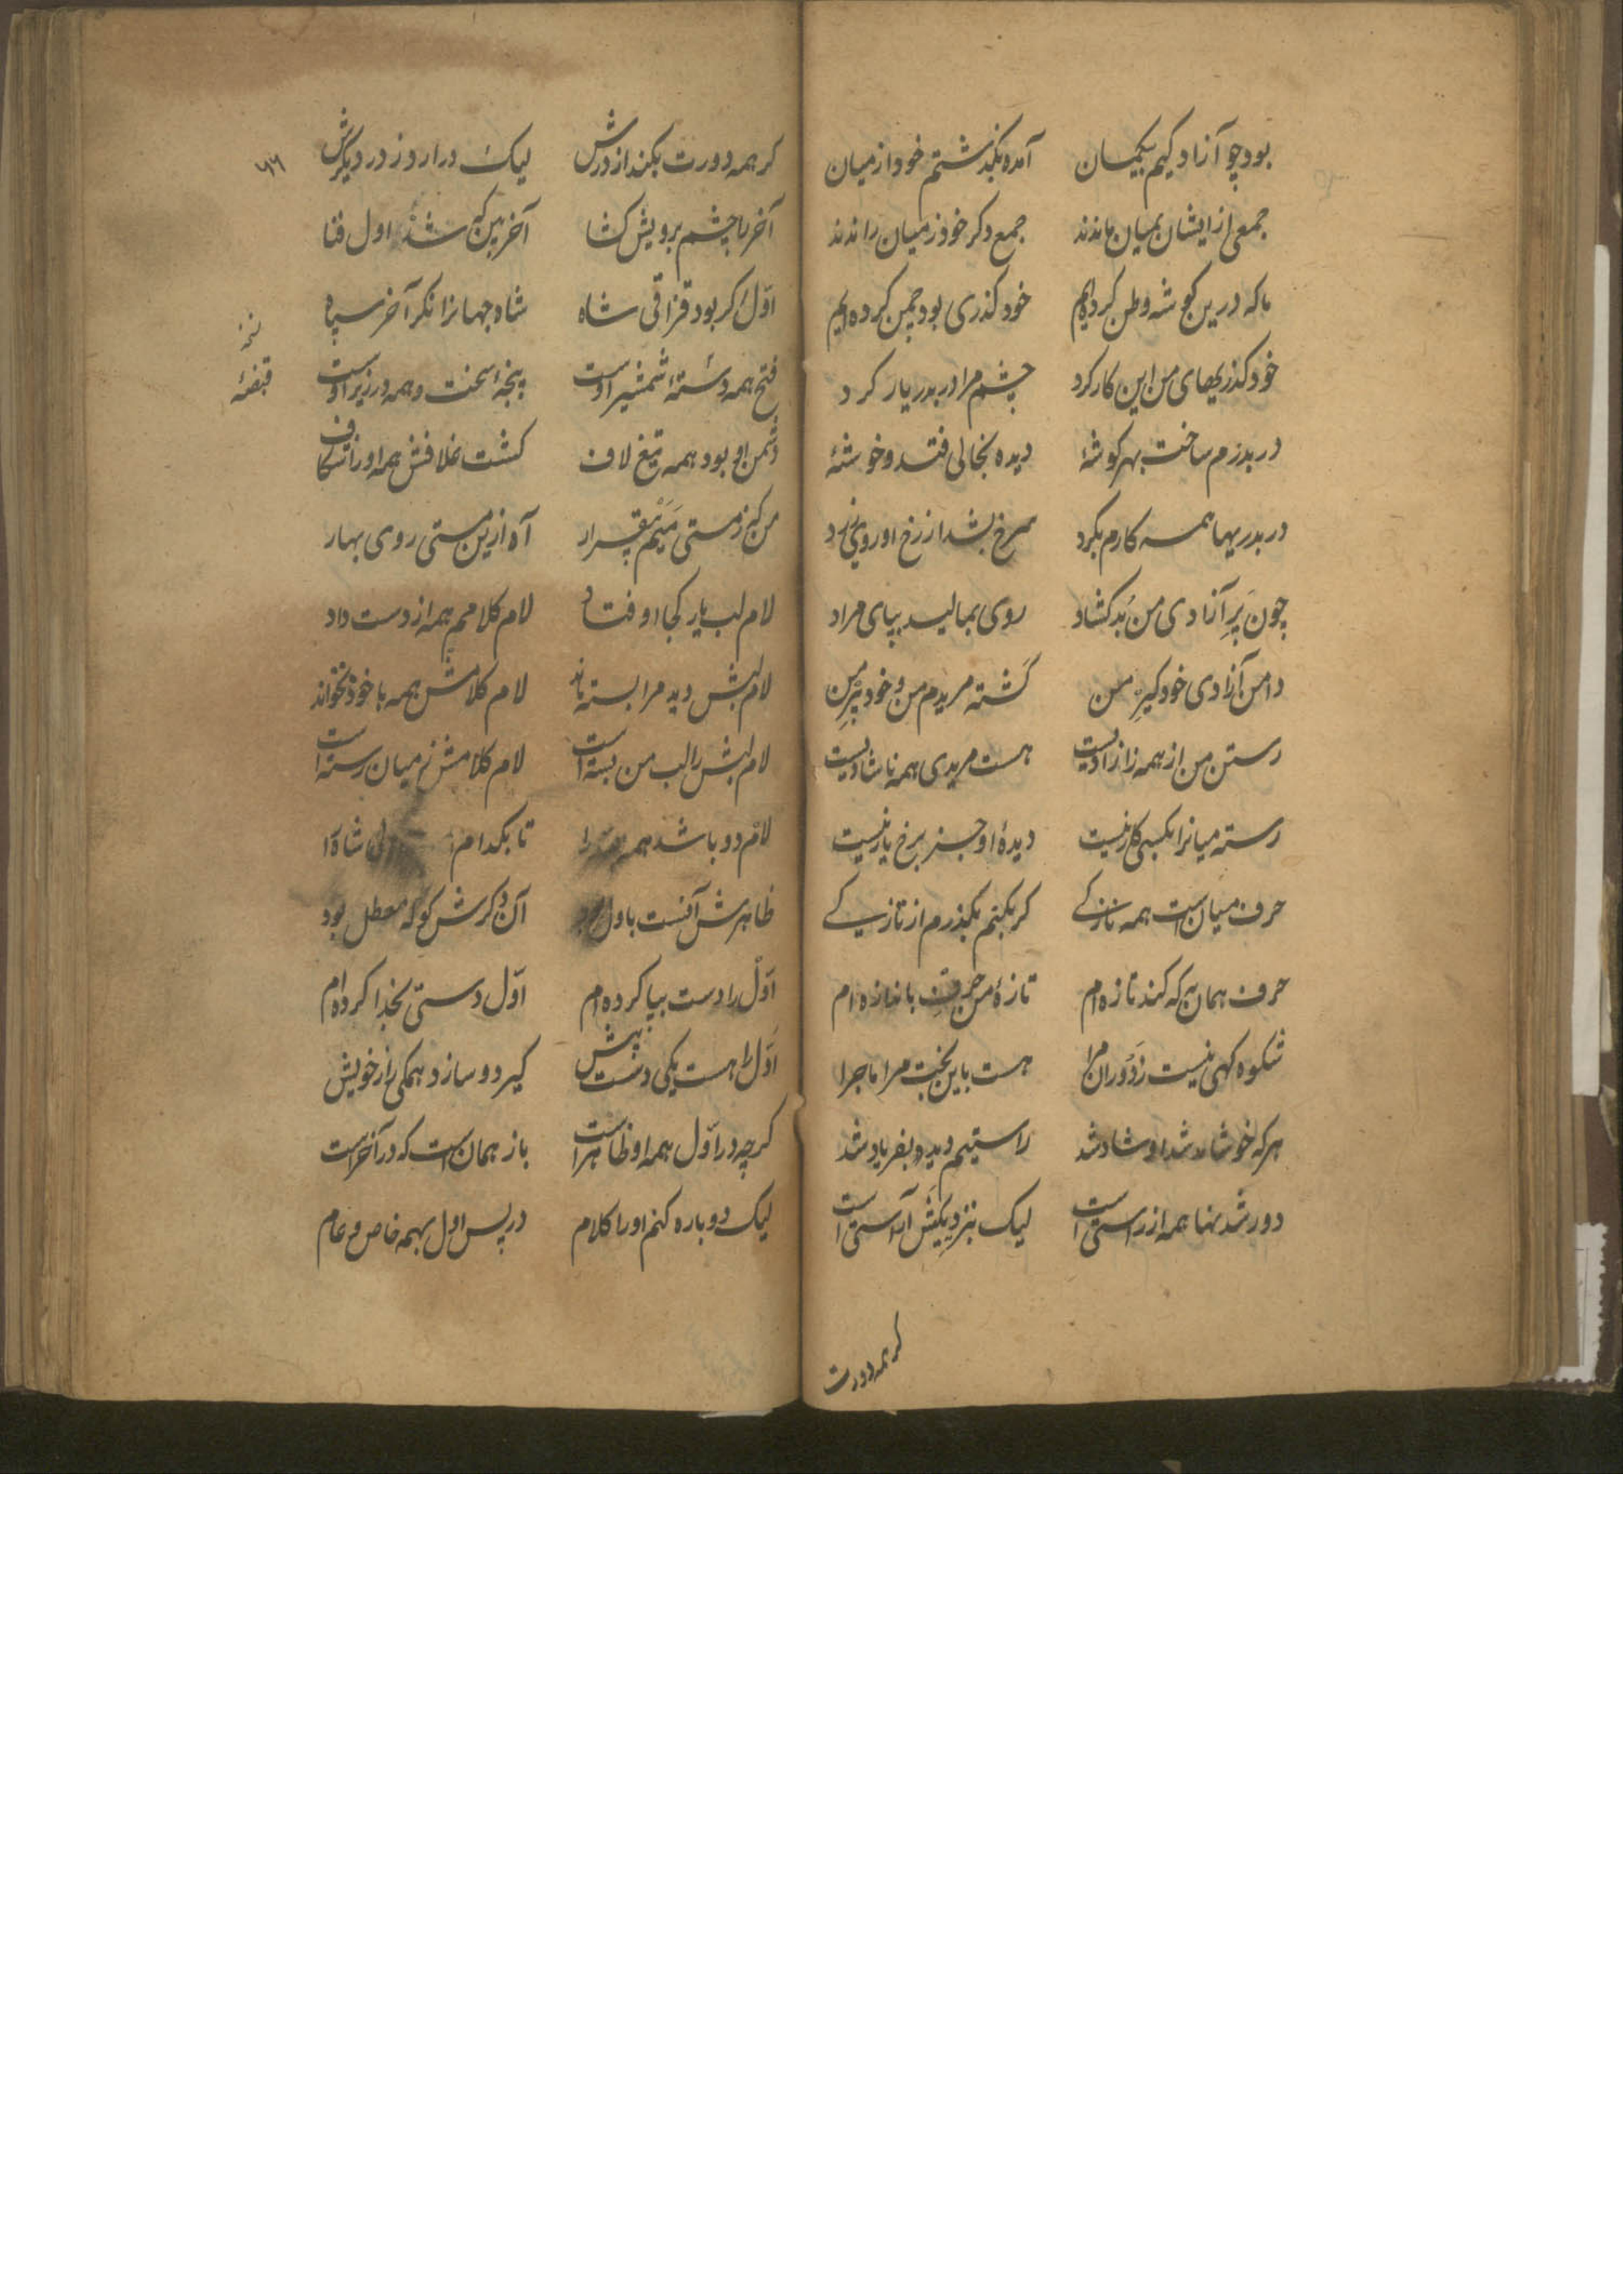 بود چو آزاد کیم بیکمان آمده بگذشتم خود از میان
جمعی از ایشان بمیان ماندند جمع دکر خود ز میان راندند
ما که درین کوشه وطن کرده‌ایم خود کذری بود چمن کرده‌ایم
خود کذریهای من این کار کرد چشم مرا در بدر یار کرد
در بدرم ساخت بهر کوشهٔ دیده بخالی فتد و خوشهٔ
در بدریها همه کارم بکرد سرخ بشد از رخ او روی زرد
چون پر آزادی من بد کشاد روی بمالید بپای مراد
دامن آزادی خود کیر من کشته مریدم من و خود پیر من
رستن من از همه ز آزادیست هست مریدی همه ناشادیست
رسته میانرا بکسی کار نیست دیدهٔ او جز برخ یار نیست
حرف میان است همه نازکی کر بکنم بکذرم از تازکی
حرف همان به که کند تازه‌ام تازهٔ من حرف باندازه‌ام
شکوه کهی نیست ز دوران مرا هست باین بخت مرا ماجرا
هر که خوشامد شد او شاد شد راستیم دید و بفریاد شد
دور شد نها همه از راستی است لیک بنزدیکش آراستی است
کر همه دورت
کر همه دورت بکند از درش لیک درآ روز در دیکرش
۷۶
آخر ما چشم برویش کشا آخر بین که شد اول فنا
اول اکر بود قزاقی شاه شاه جهانرا نکر آخر سپاه
فتح همه دستهٔ شمشیر اوست پنجهٔ سخت و همه در زیر اوست
قبضهٔ
دشمن او بود همه تیغ لاف کشت غلافش همه او را شکاف
من که ز مستی میم بیقرار آه ازین مستی روی بهار
لام لب یار کجا اوفتاد لام کلامم همه از دست داد
لام لبش دید مرا بسته ماند لام کلامش همه با خود نخواند
لام لبش را لب من بسته است لام کلامش ز میان رسته است
لام دو باشد همه تا بکدام شاه را
ظاهرش آنست باول آن دکرش کو که معطل بود
اول را دست بپا کرده‌ام اول دستی بخدا کرده‌ام
اول را هست یکی دست پیش کیرد و سازد همکی راز خویش
کرچه در اول همه او ظاهر است باز همان است که در آخر است
لیک دوباره کنم او را کلام در پس اول بهمه خاص و عام